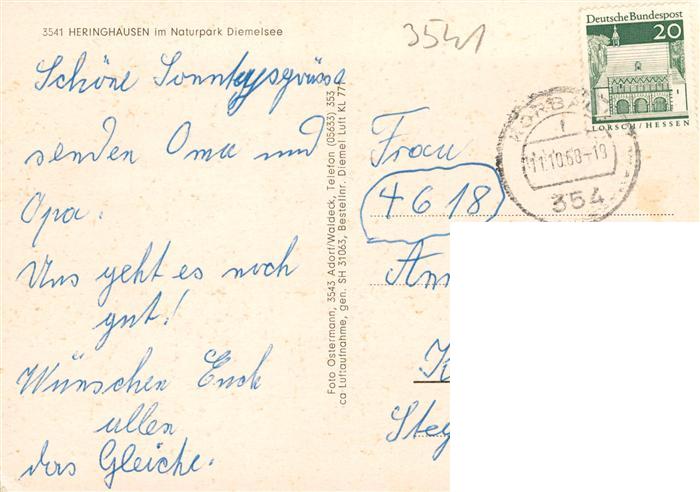 3541 HERINGHAUSEN im Naturpark Diemelsee
3541
Deutsche Bundespost
20
LORSCH/HESSEN
KORBACH
1
11.10.68-19
354
Schöne Sonntagsgrüsse
senden Oma und
Opa.
Uns geht es noch
gut!
Wünschen Euch
allen
das Gleiche.
Foto Ostermann, 3543 Adorf/Waldeck, Telefon (05633) 353
ca-Luftaufnahme, gen. SH 31063, Bestellnr. Diemel Luft KL 771
Frau
4618
Ann
K
Steg